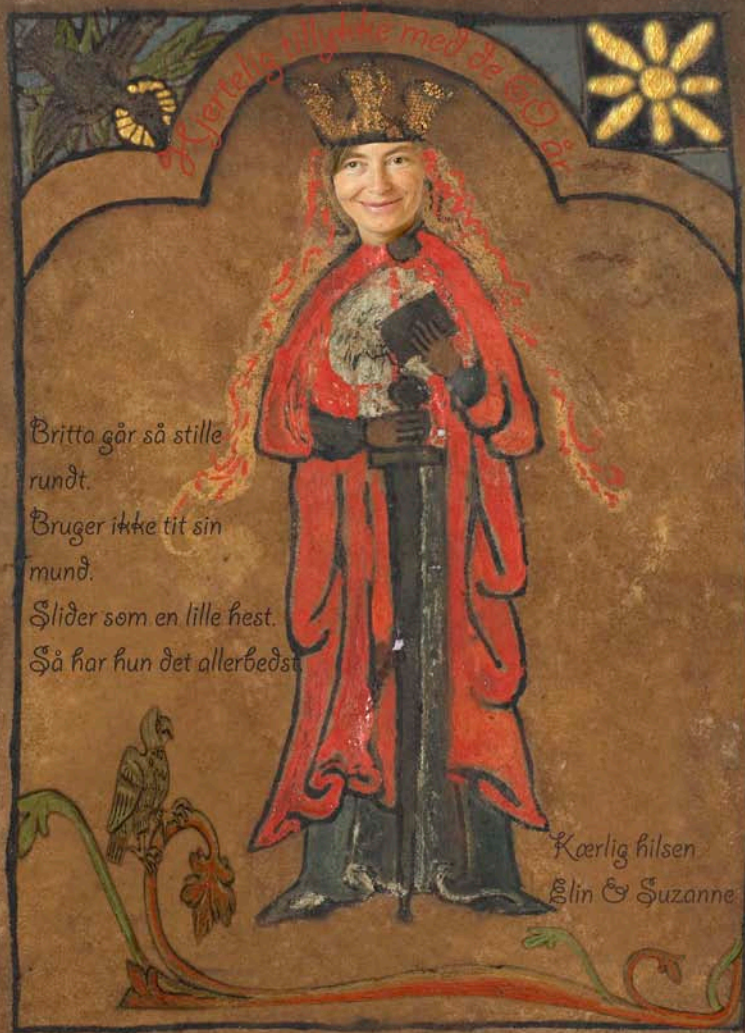 Hjertelig tillykke med de 60 år
Britta går så stille
rundt.
Bruger ikke tit sin
mund.
Slider som en lille hest.
Så har hun det allerbedst
Kærlig hilsen
Elin & Suzanne